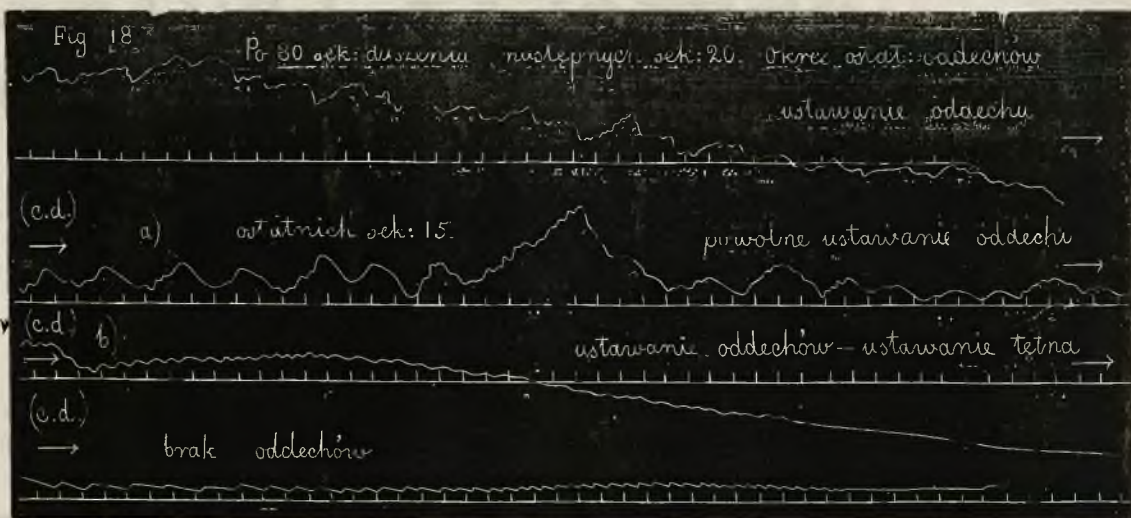 Fig 18
Po 80 sek: duszenia następnych sek: 20. Okres
ustawanie oddechu
(c.d.)
a) ostatnich sek: 15. powolne ustawanie oddechu
(c.d.)
b) ustawanie oddechów – ustawanie tętna
(c.d.)
brak oddechów